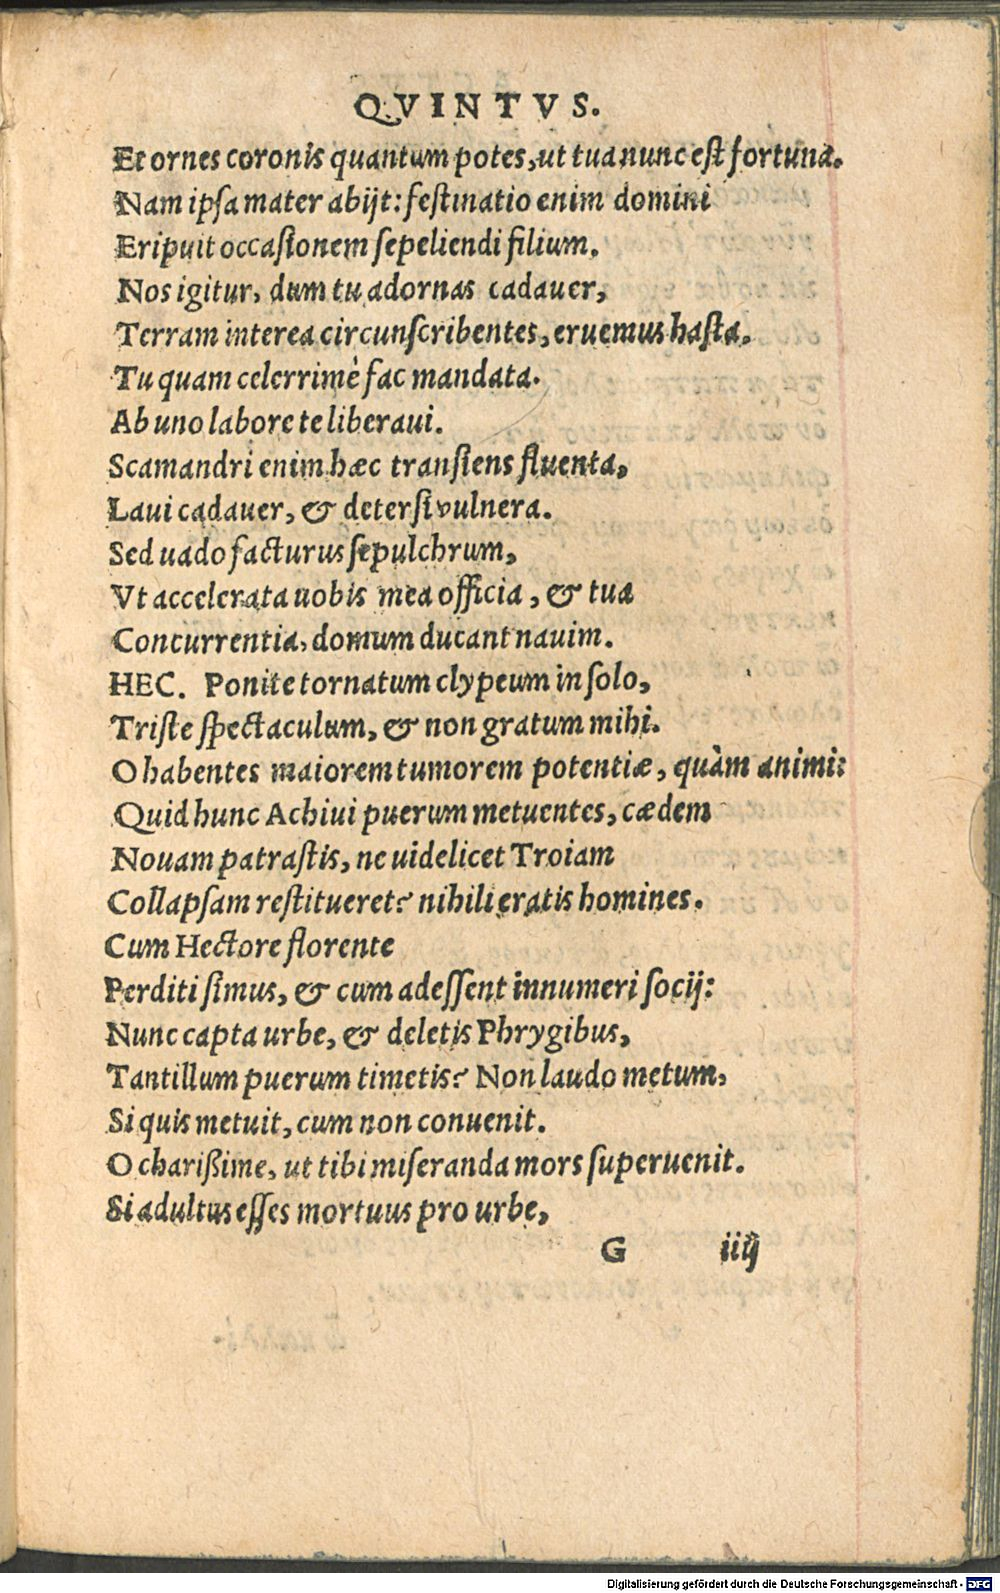 QVINTVS.
Et ornes coronis quantum potes, ut tua nunc est fortuna.
Nam ipsa mater abijt: festinatio enim domini
Eripuit occasionem sepeliendi filium.
Nos igitur, dum tu adornas cadauer,
Terram interea circunscribentes, eruemus hasta.
Tu quam celerrimè fac mandata.
Ab uno labore te liberaui.
Scamandri enim hæc transiens fluenta,
Laui cadauer, & detersi vulnera.
Sed uado facturus sepulchrum,
Vt accelerata uobis mea officia, & tua
Concurrentia, domum ducant nauim.
HEC. Ponite tornatum clypeum in solo,
Triste spectaculum, & non gratum mihi.
O habentes maiorem tumorem potentiæ, quàm animi:
Quid hunc Achiui puerum metuentes, cædem
Nouam patrastis, ne uidelicet Troiam
Collapsam restitueret? nihili eratis homines.
Cum Hectore florente
Perditi simus, & cum adessent innumeri socij:
Nunc capta urbe, & deletis Phrygibus,
Tantillum puerum timetis? Non laudo metum,
Si quis metuit, cum non conuenit.
O charißime, ut tibi miseranda mors superuenit.
Si adultus esses mortuus pro urbe,
G iiij
Digitalisierung gefördert durch die Deutsche Forschungsgemeinschaft - DFG